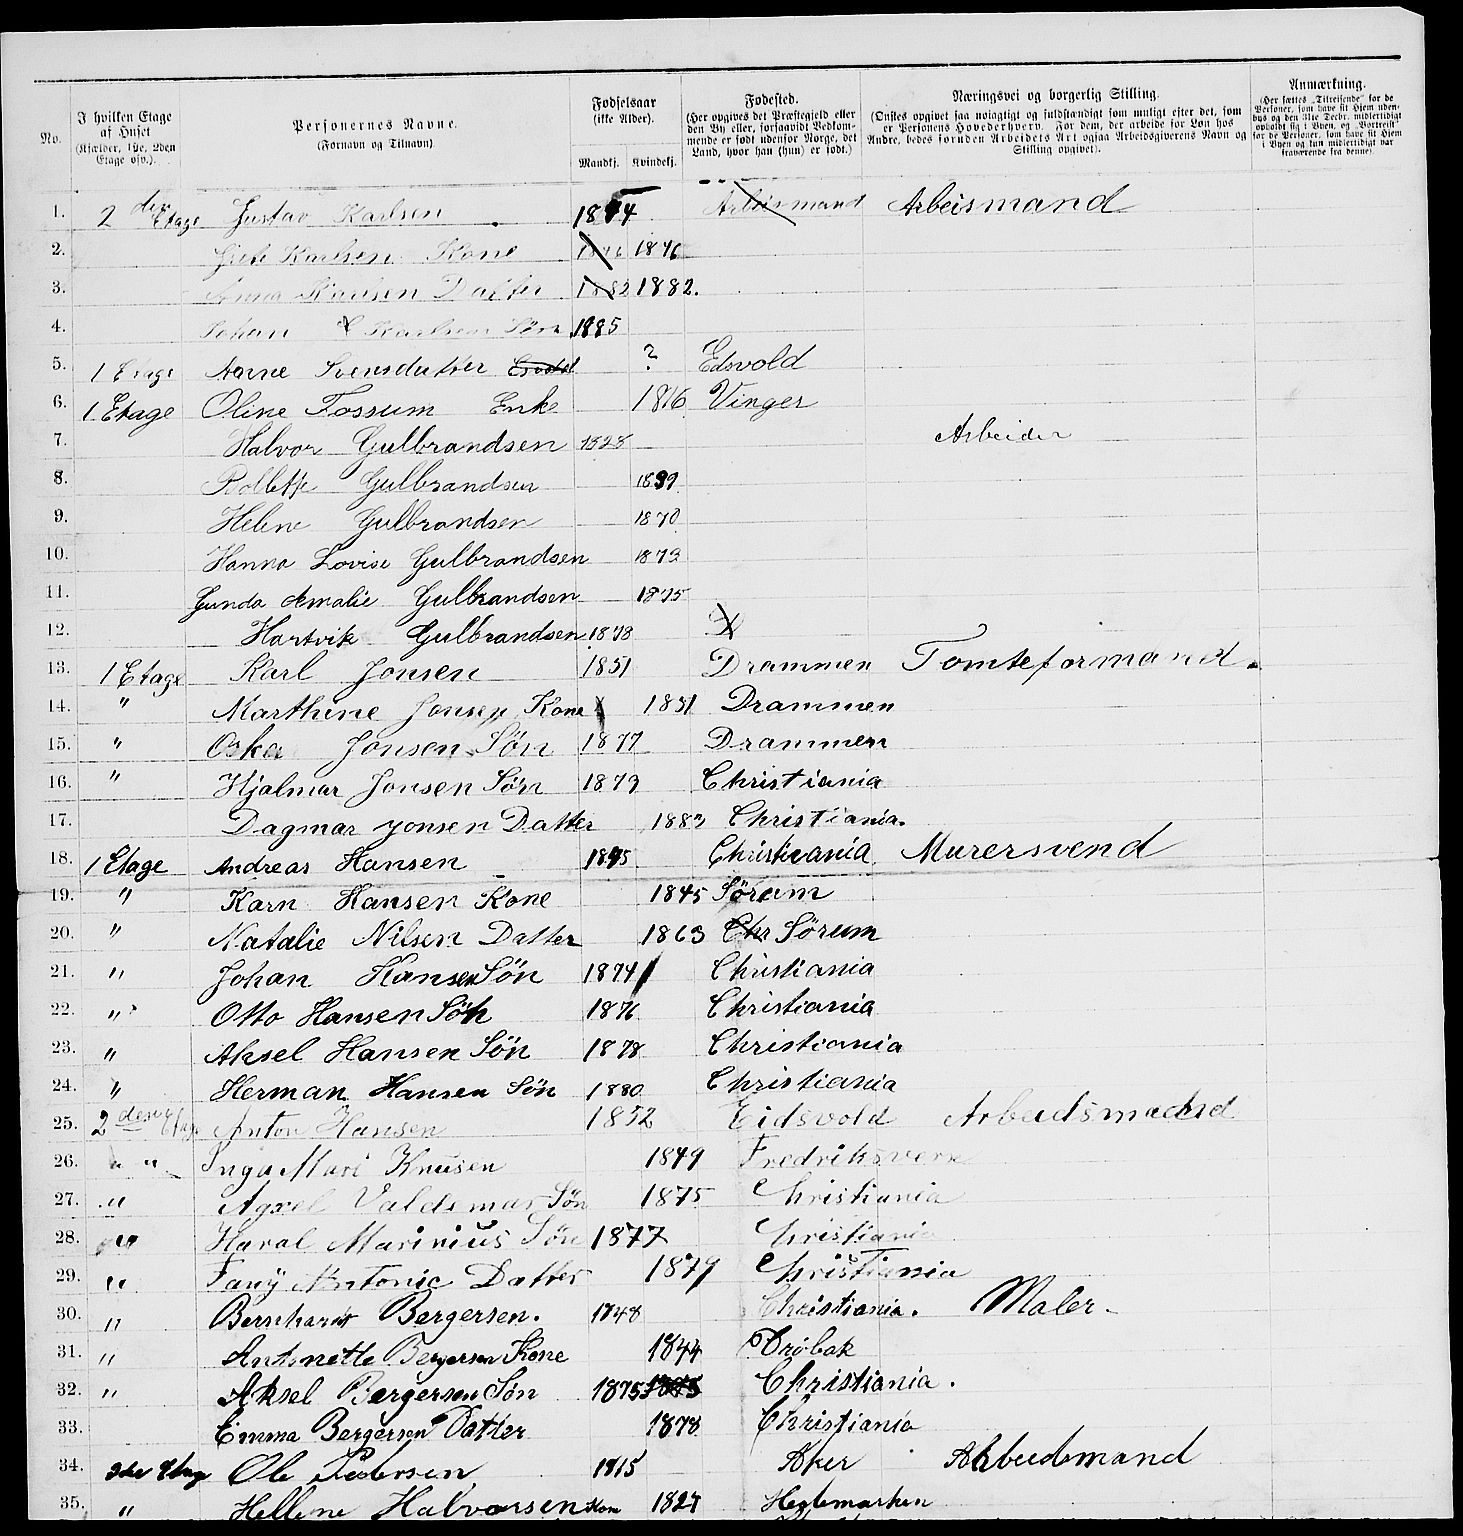 No. I hvilken Etage af Huset (Kjælder, 1ste, 2den Etage osv.). Personernes Navne. (Fornavn og Tilnavn). Fødselsaar (ikke Alder). Mandkj. Kvindekj. Fødested. (Her opgives det Præstegjeld eller den By eller, forsaavidt Vedkommende er født udenfor Norge, det Land, hvor han (hun) er født.) Næringsvei og borgerlig Stilling. (Ønskes opgivet saa nøiagtigt og fuldstændigt som muligt efter det, som er Personens Hovederhverv. For dem, der arbeide for Løn hos Andre, bedes foruden Arbeidets Art ogsaa Arbeidsgiverens Navn og Stilling opgivet). Anmærkning. (Her sættes „Tilreisende" for de Personer, som have sit Hjem udenbys og den 31te Decbr. midlertidigt opholdt sig i Byen, og „Bortreist" for de Personer, som have sit Hjem i Byen og kun midlertidigt var fraværende fra denne).
1. 2 den Etage Gustav Karlsen 1844 Arbeismand Arbeismand
2. Karlsen Kone 1846 1846
3. Anna Karlsen Datter 1882 1882.
4. Johan Karlsen Søn 1885
5. 1 Etage Anne Svensdatter ? Edsvold
6. 1 Etage Oline Fossum Enke 1816 Vinger
7. Halvor Gulbrandsen 1828 Arbeider
8. Bollette Gulbrandsen 1839
9. Helene Gulbrandsen 1870
10. Hanna Lovise Gulbrandsen 1873
11. Gunda Amalie Gulbrandsen 1875
12. Hartvik Gulbrandsen 1878
13. 1 Etage Karl Jonsen 1851 Drammen Tomteformand.
14. " Marthine Jonsen Kone 1851 Drammen
15. " Oskar Jonsen Søn 1877 Drammen
16. " Hjalmar Jonsen Søn 1879 Christiania
17. Dagmar Jonsen Datter 1883 Christiania.
18. 1 Etage Andreas Hansen 1845 Christiania Murersvend
19. " Karn Hansen Kone 1845 Sörum
20. " Natalie Nilsen Datter 1863 Chr Sörum
21. " Johan Hansen Søn 1874 Christiania
22. " Otto Hansen Søn 1876 Christiania
23. " Aksel Hansen Søn 1878 Christiania
24. " Herman Hansen Søn 1880 Christiania
25. 2 den Etage Anton Hansen 1852 Eidsvold Arbeidsmand
26. " " Inga Mari Knusen 1849 Fredriksvern
27. " Axel Valdemar Søn 1875 Christiania
28. " Haral Marinius Søn 1877 Christiania
29. " Fany Antonie Datter 1879 Christiania
30. " Bernhardt Bergersen. 1848 Christiania. Maler.
31. " Antonette Bergersen Kone 1844 Drøbak
32. " Aksel Bergersen Søn 1875 1875 Christiania.
33. Emma Bergersen Datter 1878 Christiania
34. Etage Ole Pedersen 1815 Aker Abbeidsmand
35. " Hellene Halvorsen Kone 1827 Hedemarken